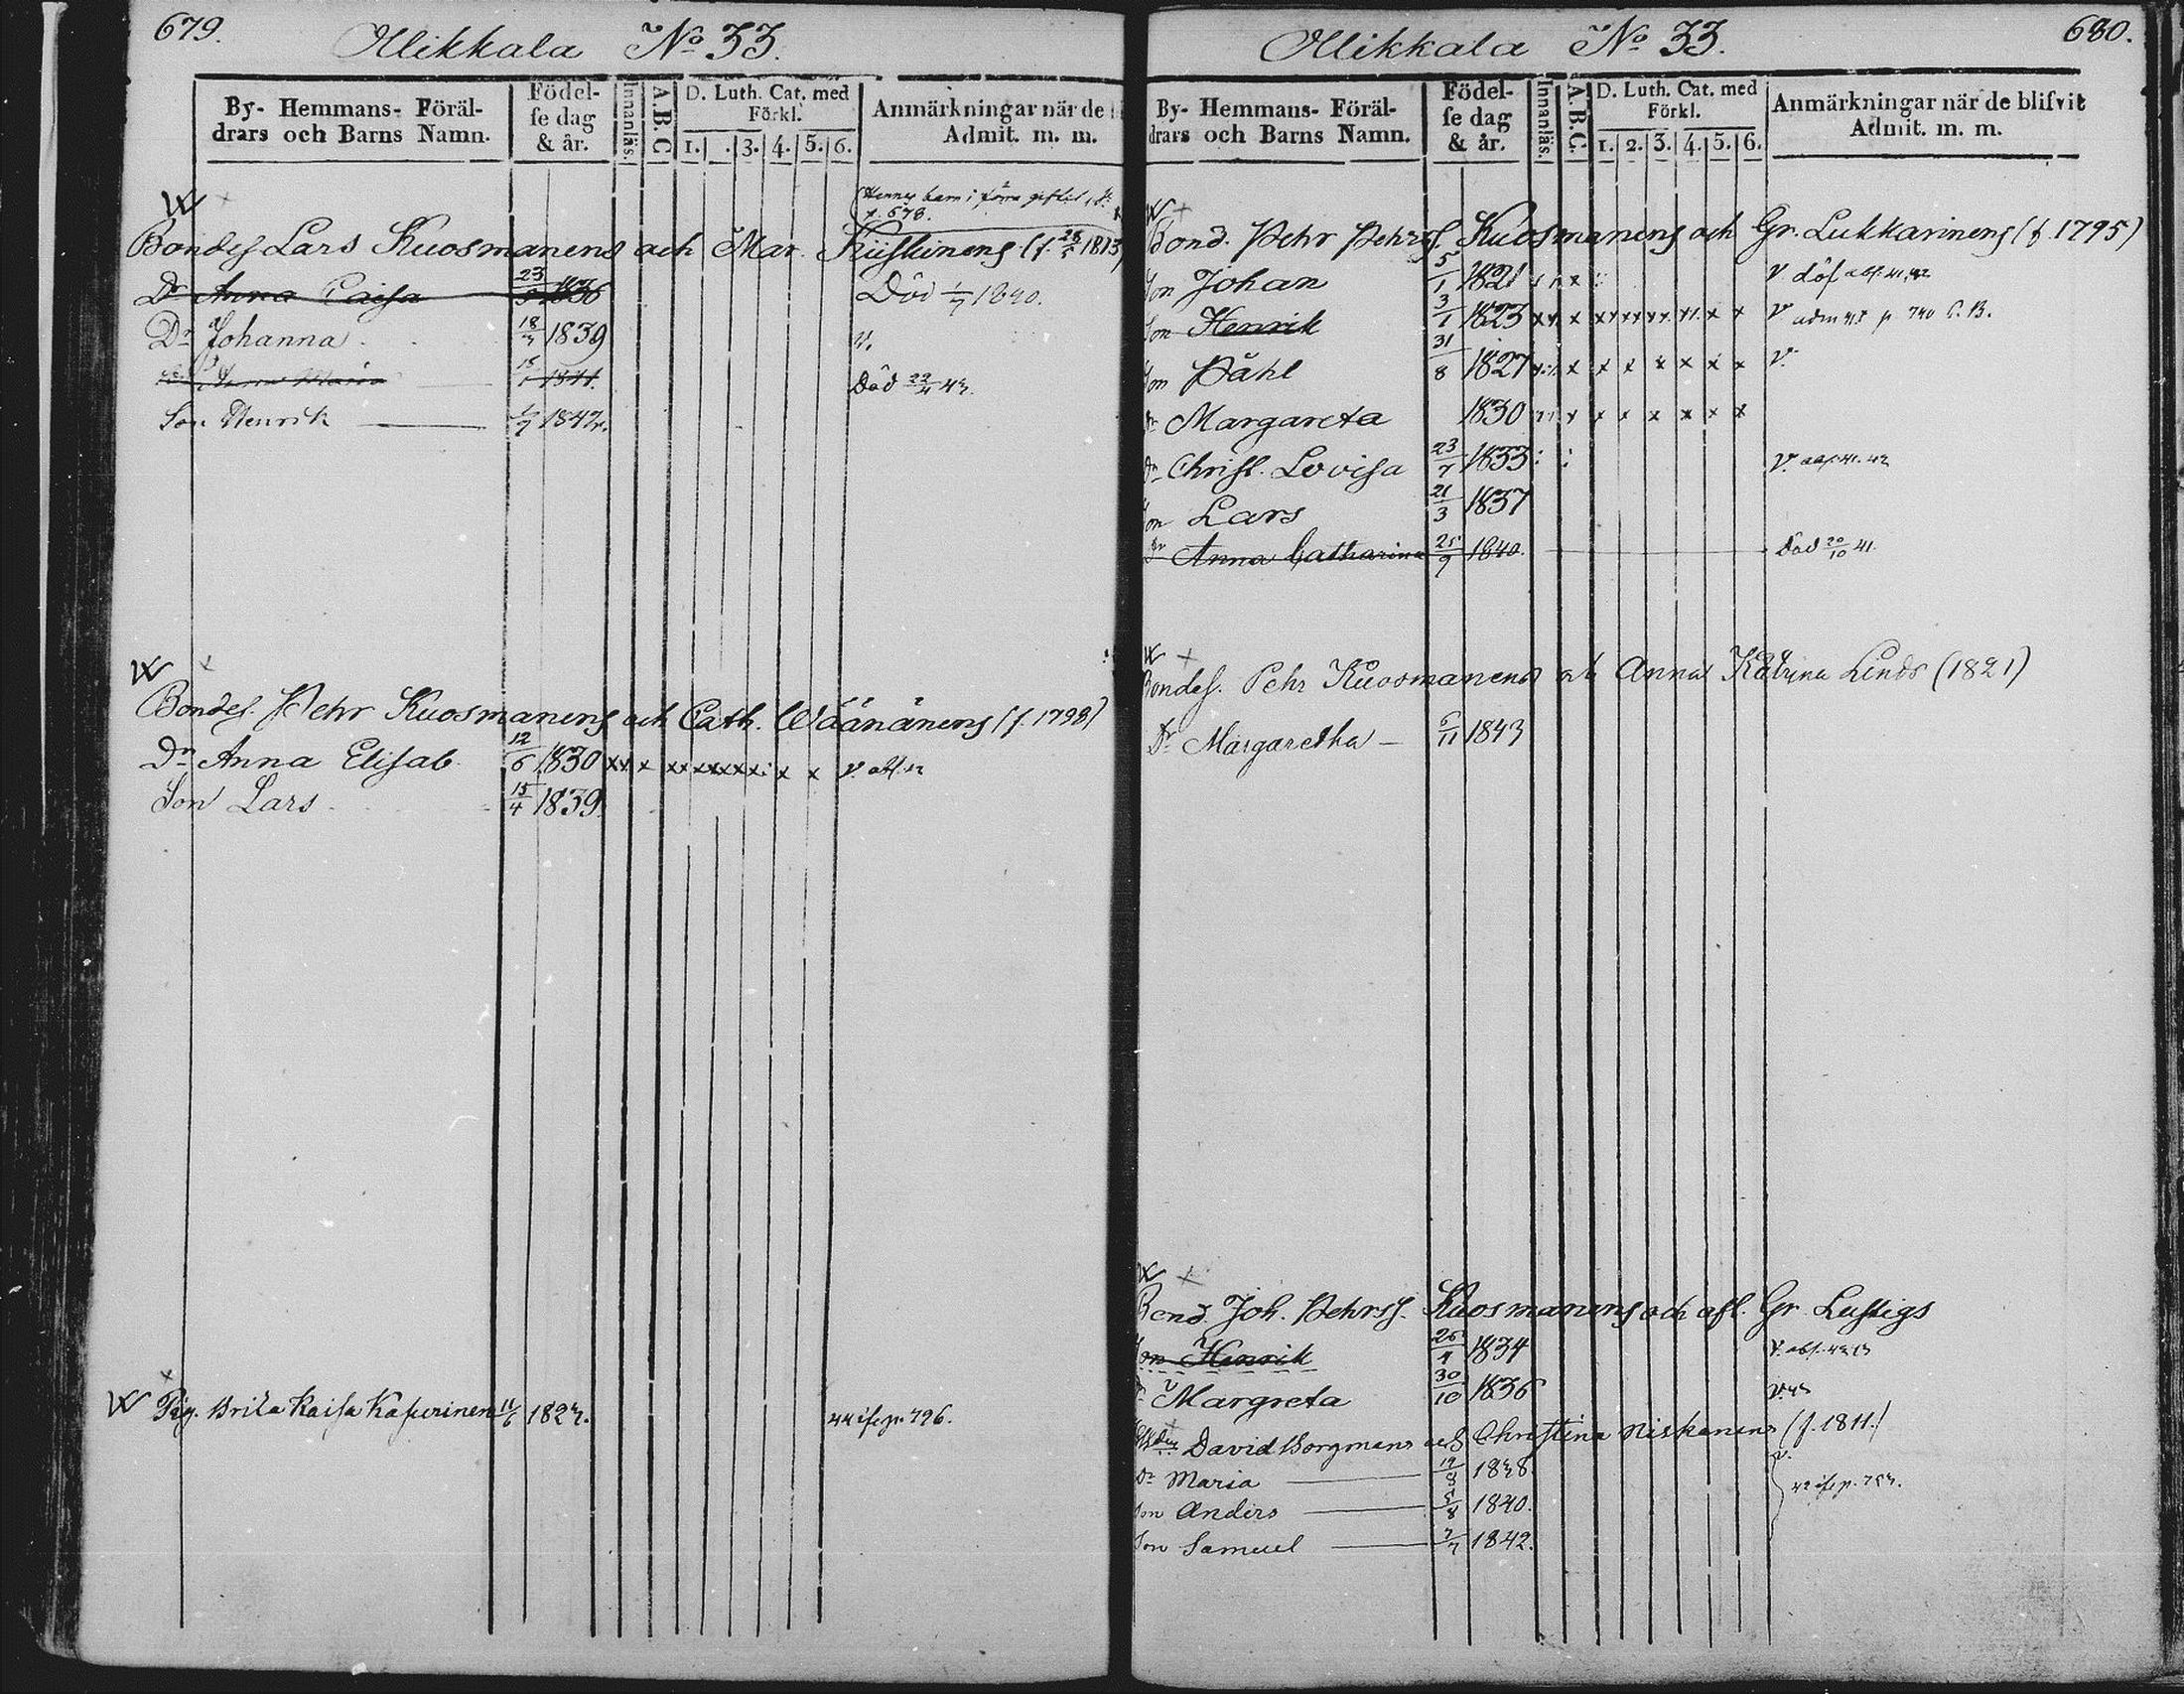 679.
Mikkala No 33.
By- Hemmans- Föräl-
drars och Barns Namn.
Födel-
se dag
& år.
Innanläs.
A.B.C
D. Luth. Cat. med
Förkl.
1. . 3. 4. 5. 6.
Anmärkningar när de
Admit. m. m.
p. 678.
Bondes. Lars Kuosmanens och Mar. (f. 1813
Dr Anna Caisa 23 1836 Död 1/7 1840.
Dr Johanna 18 1839 v.
1841. Död 43.
Son Henrik 184
Bondes. Pehr Kuosmanens och Cath. Wäänänens (f. 1798)
Dr Anna Elisab. 12/6 1830 xx x x x v.
Son Lars 15/4 1839.
Pig. Brita Kaisa 182
796.
680.
Mikkala No 33.
By- Hemmans- Föräl-
drars och Barns Namn.
Födel-
se dag
& år.
Innanläs.
A.B.C.
D. Luth. Cat. med
Förkl.
1. 2. 3. 4. 5. 6.
Anmärkningar när de blifvit
Admit. m. m.
Bond. Pehr Pehrss. Kuosmanens och Gr. Lukkarinens (f. 1795)
Son Johan 5/1 1821 v döf
Son Henrik 3/1 1823 v adm p 740
Son Påhl 31/8 1827 x x x x x x x v.
Dr Margareta 1830 x x x x x x x
Dr Christ. Lovisa 23/7 1833 v.
Son Lars 21/3 1837
Dr Anna Catharina 25/9 1840. Död 20/10 41.
Bondes. Pehr Kuosmanens och Anna Katrina Linds (1821)
Dr Margaretha 6/11 1843
Bond. Joh. Pehrss. Kuosmanens och afl. Gr. Lustigs
Son Henrik 1834
Dr Margreta 30/10 1836
David Borgmans och Christina Niskanens (f. 1811.)
Dr Maria 1838.
Son Anders 5/8 1840.
Son Samuel 7/7 1842.